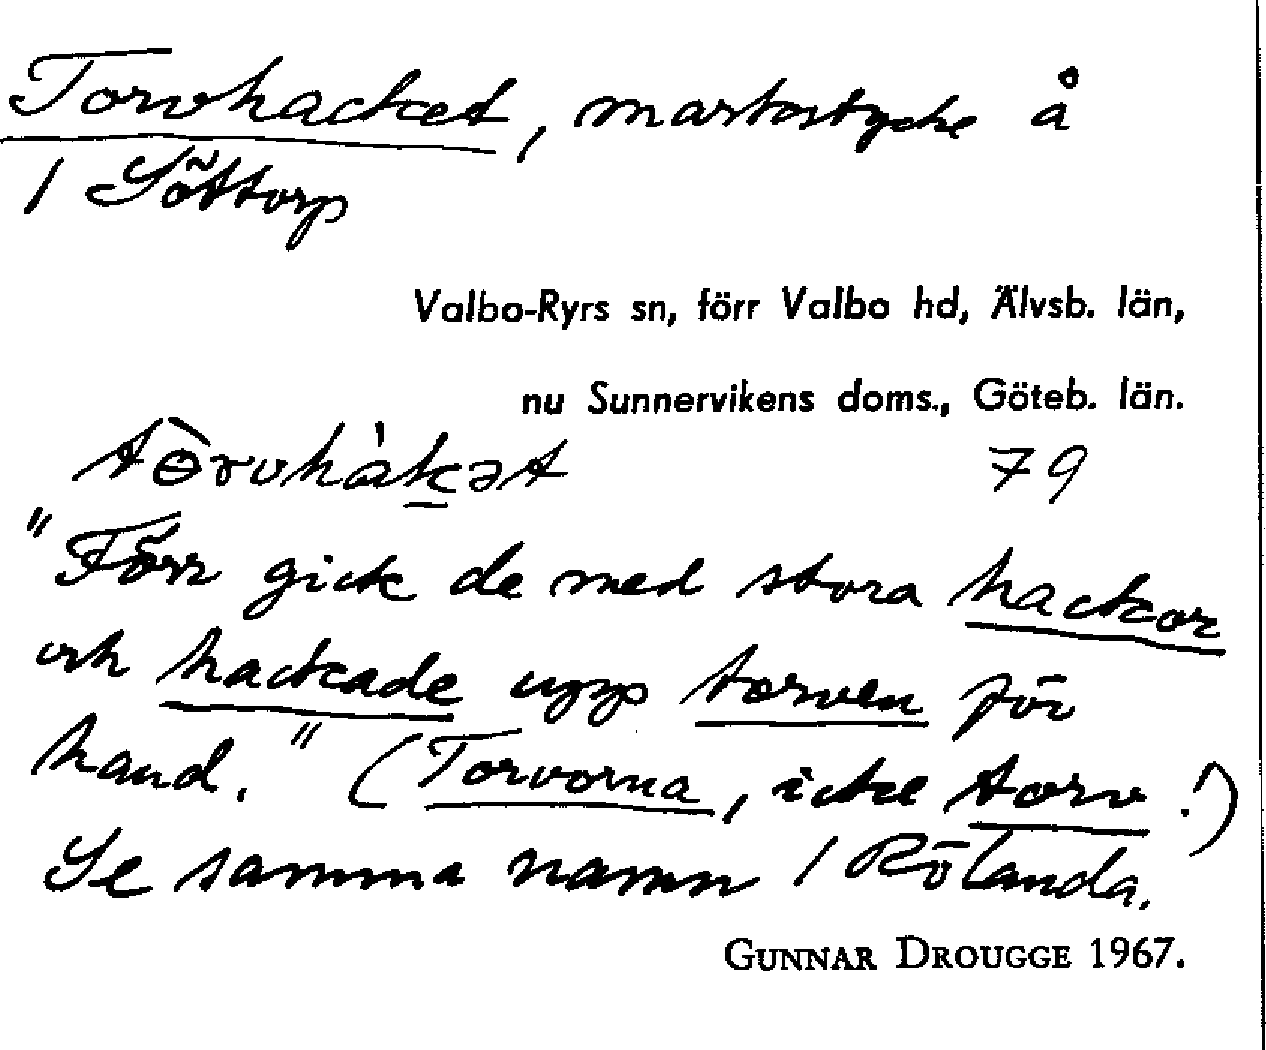 Torvhacket, markstycke å
1 Söttorp
Valbo-Ryrs sn, förr Valbo hd, Älvsb. län,
nu Sunnervikens doms., Göteb. län.
tɵ̀rvhàk̲ət 79
"Förr gick de med stora hackor
och hackade upp torven för
hand." (Torvorna, icke torv!)
Se samma namn / Rölanda.
GUNNAR DROUGGE 1967.